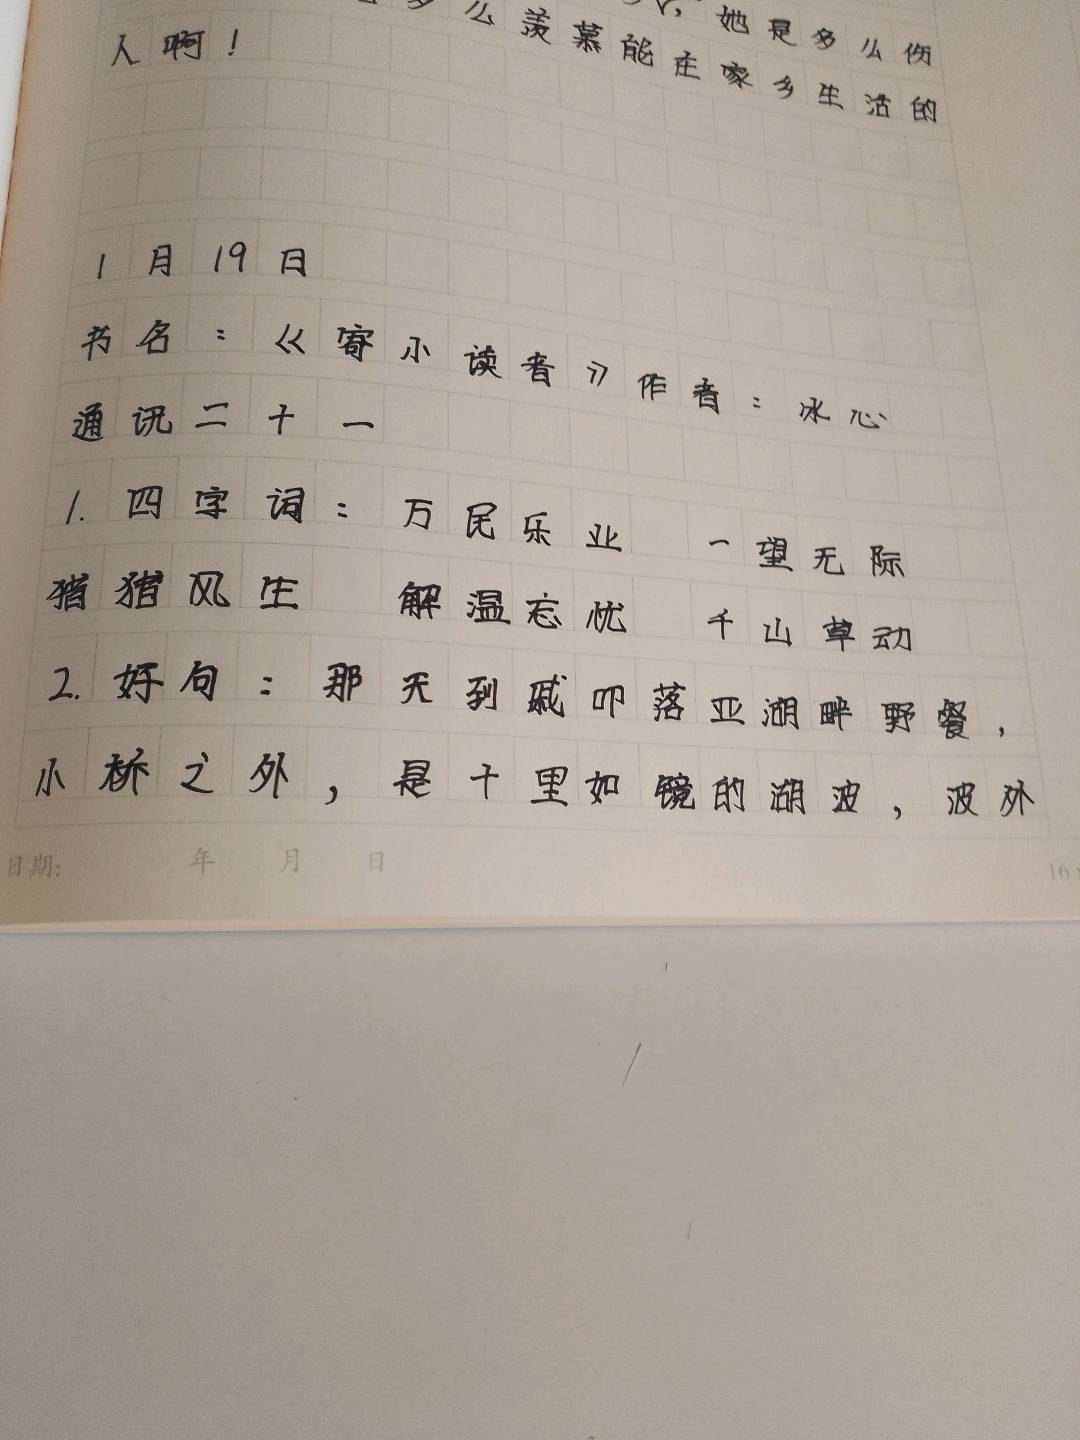 多么羡慕能在家乡生活的
，她是多么伤
人啊！
1月19日
书名：《寄小读者》作者：冰心
通讯二十一
1.四字词：万民乐业 一望无际
猎猎风生 解温忘忧 千山草动
2.好句：那天到戚叩落亚湖畔野餐，
小桥之外，是十里如镜的湖波，波外
日期： 年 月 日